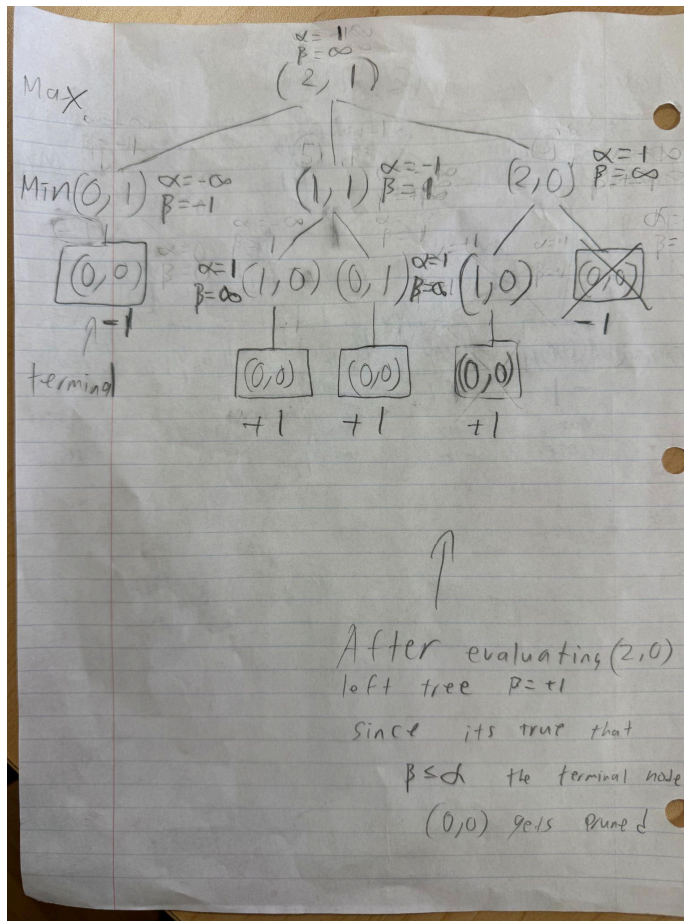 α = 1
β = ∞
(2, 1)
Max
Min (0, 1) α=-∞
β=-1
(1, 1) α=-1
β=1
(2,0) α=1
β=∞
(0,0)
-1
α=1
β=∞ (1,0)
(0,1) α=1
β=∞
(1,0)
(0,0)
-1
terminal
(0,0)
+1
(0,0)
+1
(0,0)
+1
After evaluating (2,0)
left tree β=+1
since its true that
β≤α the terminal node
(0,0) gets pruned